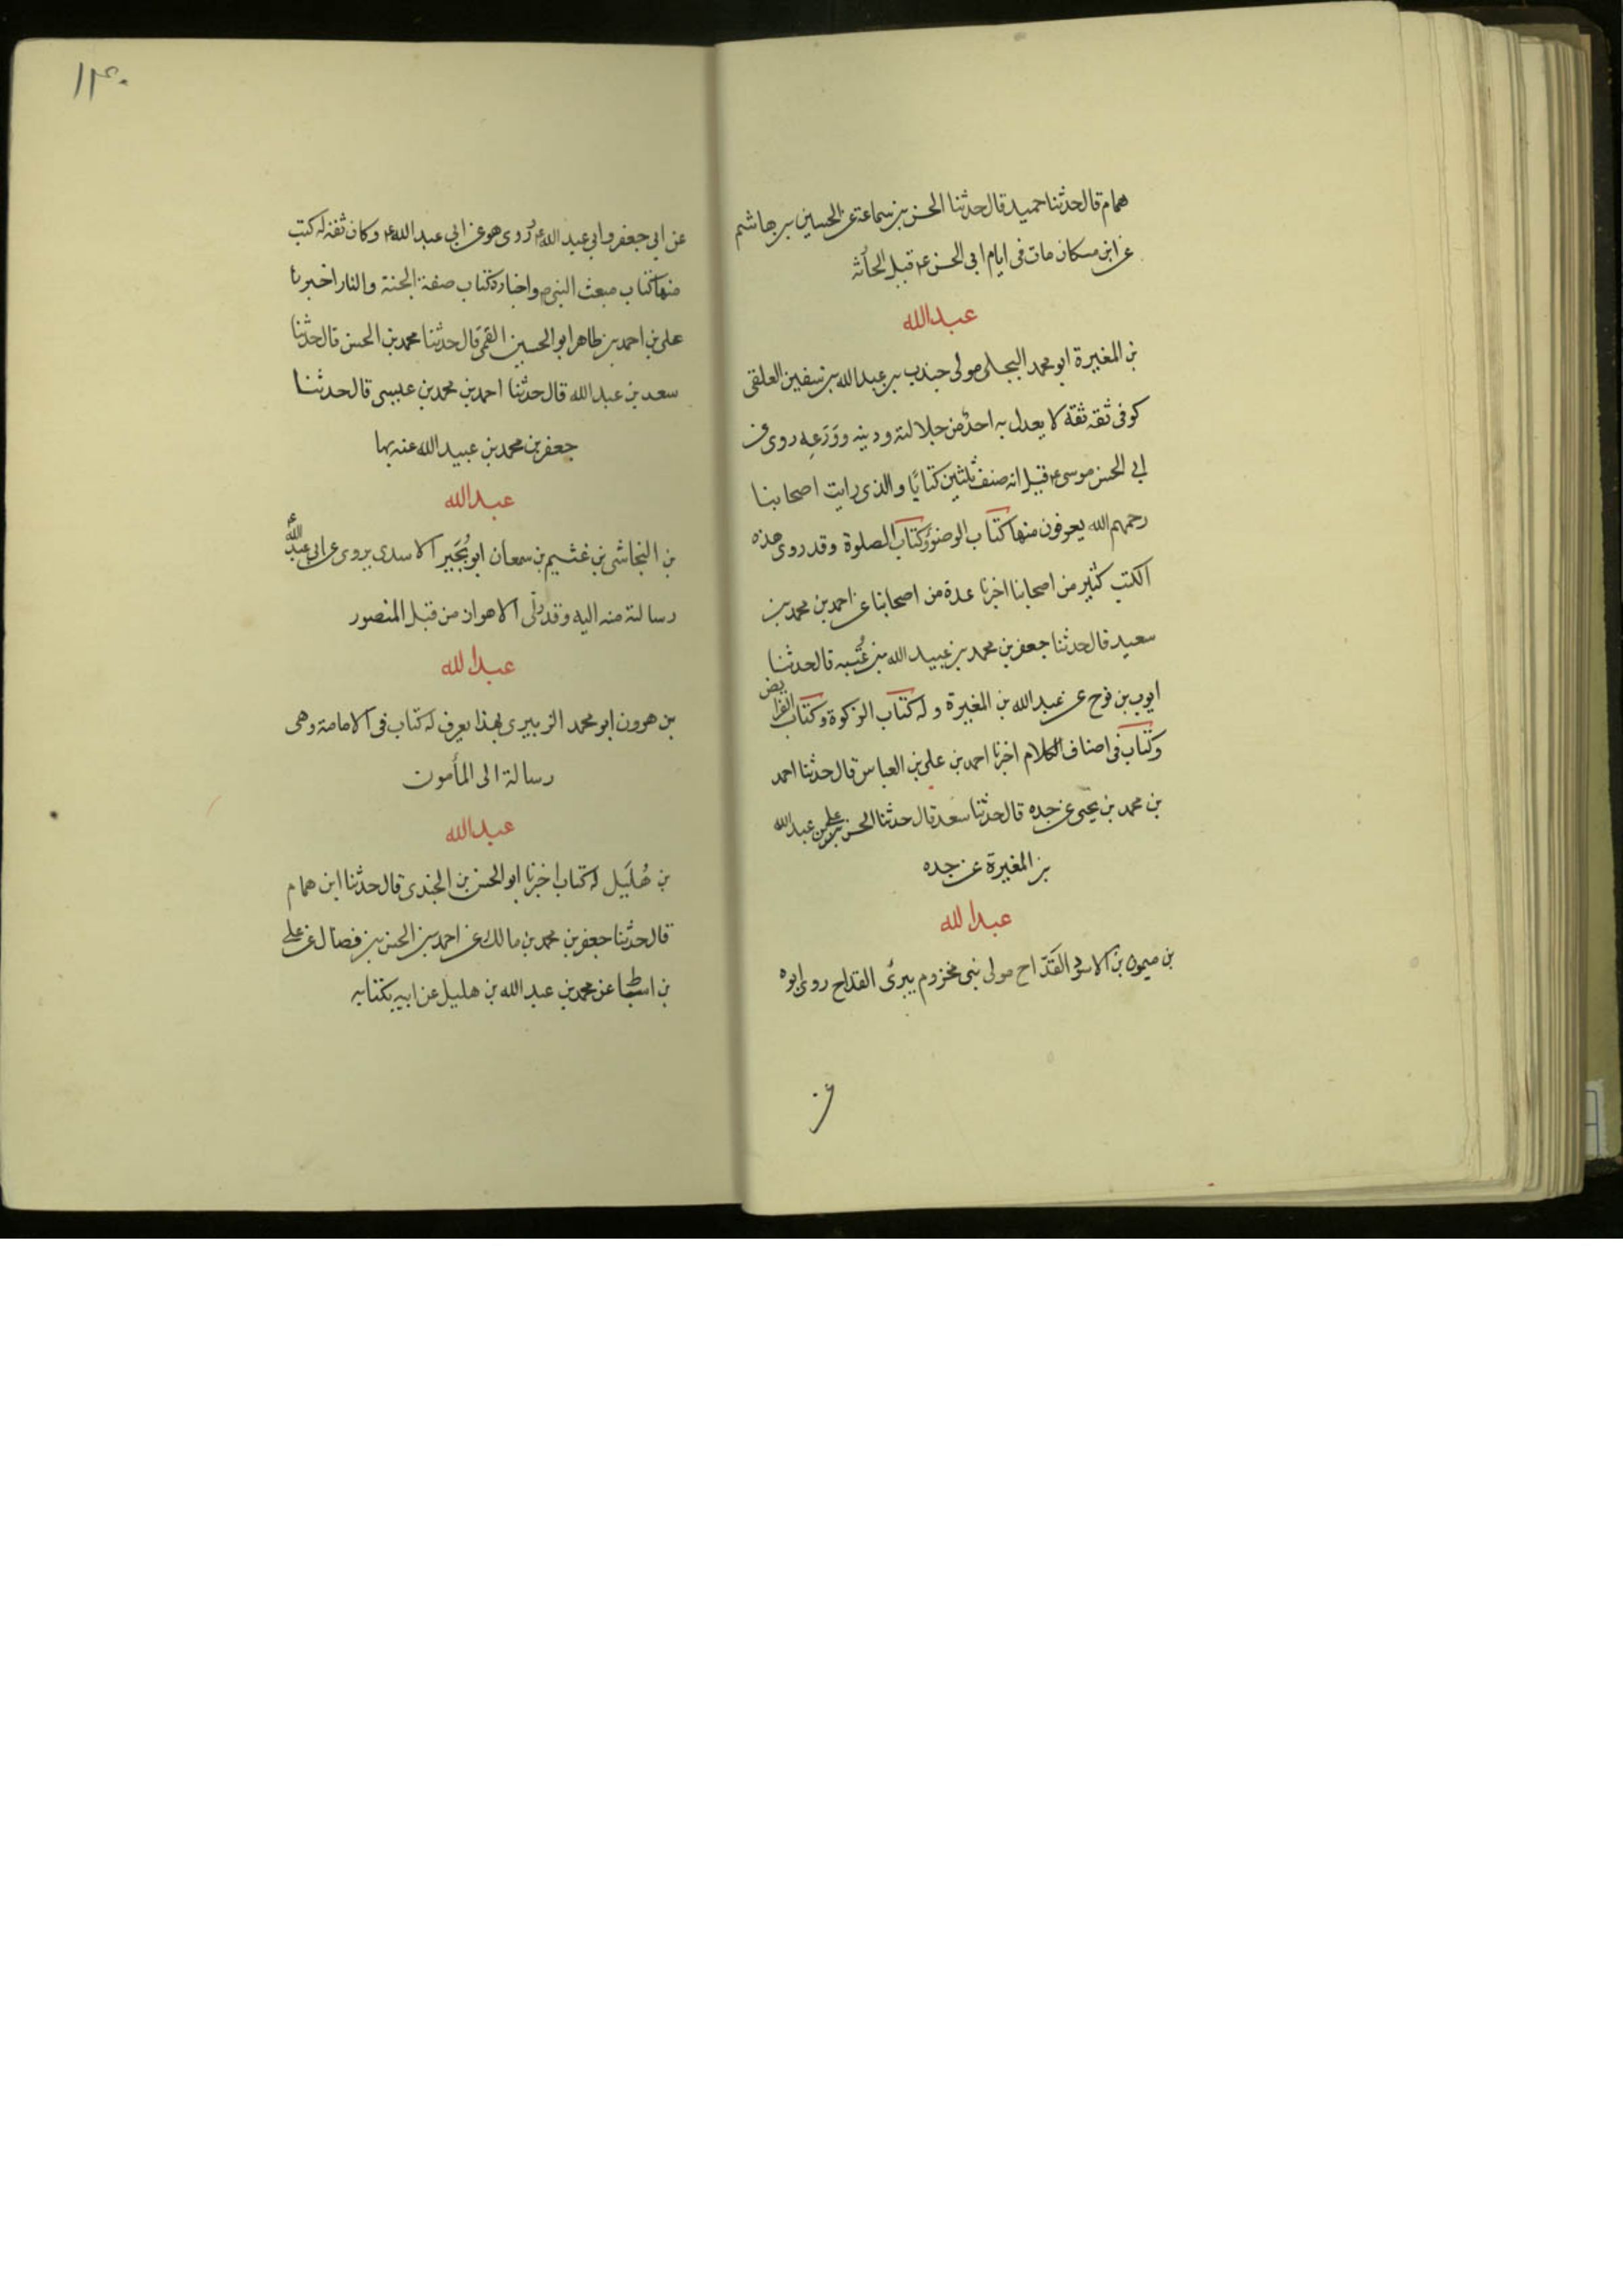 همام قال حدثنا حميد قال حدثنا الحسن بن سماعة عن الحسين بن هاشم
عن ابن مسكان مات في ايام ابي الحسن ع قبل الحادثة
عبدالله
بن المغيرة ابو محمد البجلى مولى جندب بن عبدالله بن سفين العلقى
كوفى ثقة ثقة لا يعدل به احد من جلالته ودينه وورعه روى عن
ابي الحسن موسى ع قيل انه صنف ثلثين كتابا والذى رايت اصحابنا
رحمهم الله يعرفون منها كتاب الوضوء وكتاب الصلوة وقد روى هذه
الكتب كثير من اصحابنا اخبرنا عدة من اصحابنا عن احمد بن محمد بن
سعيد قال حدثنا جعفر بن محمد بن عبيد الله بن عتبه قال حدثنا
ايوب بن نوح عن عبدالله بن المغيرة وله كتاب الزكوة وكتاب الفرايض
وكتاب في اصناف الكلام اخبرنا احمد بن على بن العباس قال حدثنا احمد
بن محمد بن يحيى عن جده قال حدثنا سعد قال حدثنا الحسن بن على بن عبدالله
بن المغيرة عن جده
عبدالله
بن ميمون بن الاسود القدّاح مولى بنى مخزوم يبرى القداح روى ابوه
عن
١٣٠
عن ابي جعفر وابي عبد الله ع روى هو عن ابي عبد الله ع وكان ثقة له كتب
منها كتاب مبعث النبى ص واخباره كتاب صفة الجنة والنار اخبرنا
على بن احمد بن طاهر ابو الحسين القمى قال حدثنا محمد بن الحسن قال حدثنا
سعد بن عبد الله قال حدثنا احمد بن محمد بن عيسى قال حدثنا
جعفر بن محمد بن عبيد الله عنه بها
عبدالله
بن النجاشى بن غثيم بن سمعان ابو بُجَير الاسدى يروى عن ابى عبدالله ع
رسالة منه اليه وقد ولّى الاهواز من قبل المنصور
عبدالله
بن هرون ابو محمد الزبيرى بهذا يعرف له كتاب فى الامامة وهى
رسالة الى المأمون
عبدالله
بن هُلَيل له كتاب اخبرنا ابو الحسن بن الجندى قال حدثنا ابن همام
قال حدثنا جعفر بن محمد بن مالك عن احمد بن الحسن بن فضال عن على
بن اسباط عن محمد بن عبد الله بن هليل عن ابيه بكتابه